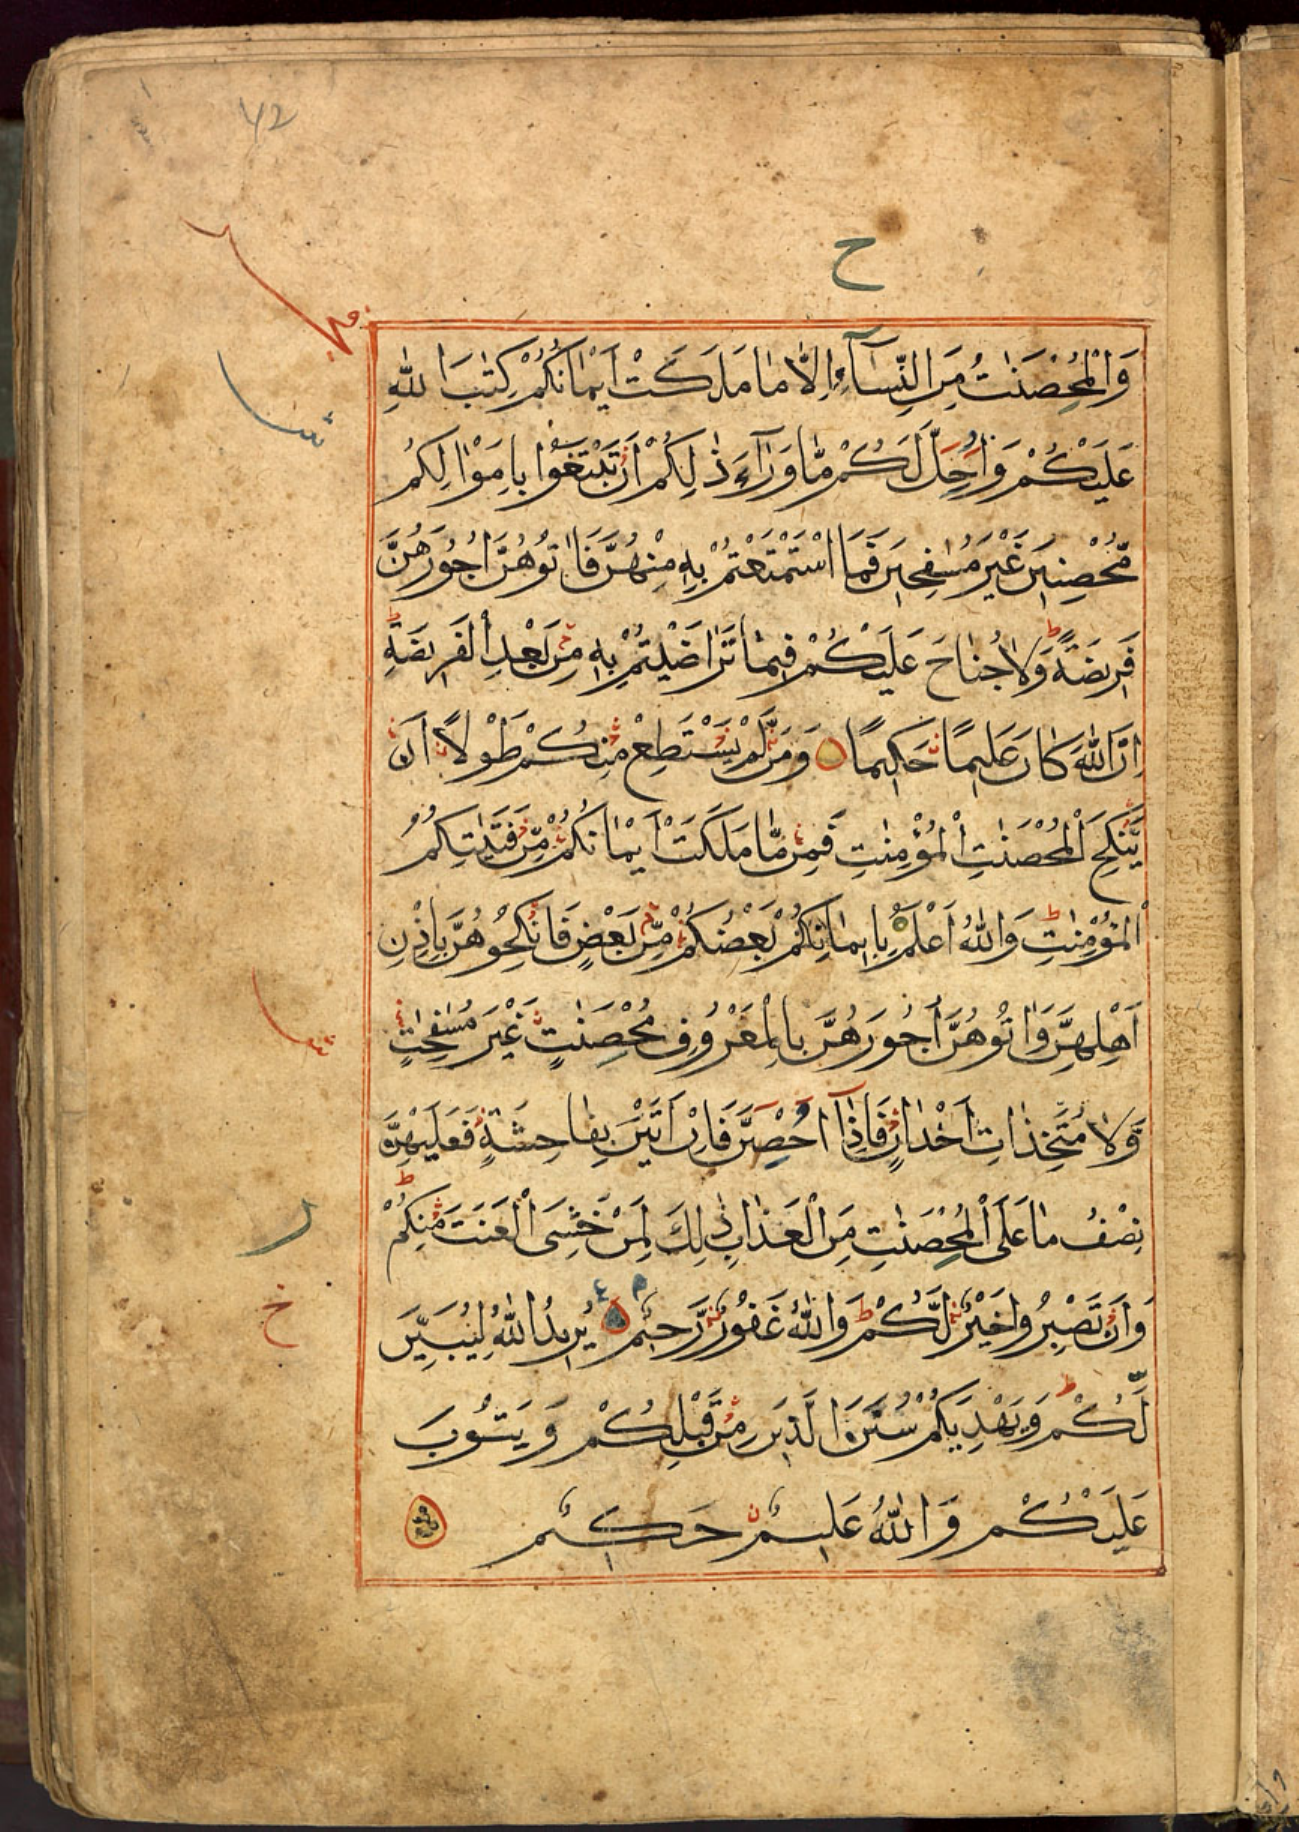 42
ح
وَالْمُحْصَنٰتُ مِنَ النِّسَآءِ اِلَّا مَا مَلَكَتْ اَيْمَانُكُمْ كِتٰبَ اللّٰهِ
عَلَيْكُمْ وَاُحِلَّ لَكُمْ مَّا وَرَآءَ ذٰلِكُمْ اَنْ تَبْتَغُوْا بِاَمْوَالِكُمْ
مُّحْصِنِيْنَ غَيْرَ مُسٰفِحِيْنَ فَمَا اسْتَمْتَعْتُمْ بِهٖ مِنْهُنَّ فَاٰتُوْهُنَّ اُجُوْرَهُنَّ
فَرِيْضَةً ط وَلَا جُنَاحَ عَلَيْكُمْ فِيْمَا تَرَاضَيْتُمْ بِهٖ مِنْ بَعْدِ الْفَرِيْضَةِ ط
اِنَّ اللّٰهَ كَانَ عَلِيْمًا حَكِيْمًا وَمَنْ لَّمْ يَسْتَطِعْ مِنْكُمْ طَوْلًا اَنْ
يَّنْكِحَ الْمُحْصَنٰتِ الْمُؤْمِنٰتِ فَمِنْ مَّا مَلَكَتْ اَيْمَانُكُمْ مِّنْ فَتَيٰتِكُمُ
الْمُؤْمِنٰتِ ط وَاللّٰهُ اَعْلَمُ بِاِيْمَانِكُمْ بَعْضُكُمْ مِّنْ بَعْضٍ فَانْكِحُوْهُنَّ بِاِذْنِ
اَهْلِهِنَّ وَاٰتُوْهُنَّ اُجُوْرَهُنَّ بِالْمَعْرُوْفِ مُحْصَنٰتٍ غَيْرَ مُسٰفِحٰتٍ
وَّلَا مُتَّخِذٰتِ اَخْدَانٍ فَاِذَآ اُحْصِنَّ فَاِنْ اَتَيْنَ بِفَاحِشَةٍ فَعَلَيْهِنَّ
نِصْفُ مَا عَلَى الْمُحْصَنٰتِ مِنَ الْعَذَابِ ذٰلِكَ لِمَنْ خَشِىَ الْعَنَتَ مِنْكُمْ ط
وَاَنْ تَصْبِرُوْا خَيْرٌ لَّكُمْ ط وَاللّٰهُ غَفُوْرٌ رَّحِيْمٌ يُرِيْدُ اللّٰهُ لِيُبَيِّنَ
لَكُمْ وَيَهْدِيَكُمْ سُنَنَ الَّذِيْنَ مِنْ قَبْلِكُمْ وَيَتُوْبَ
عَلَيْكُمْ وَاللّٰهُ عَلِيْمٌ حَكِيْمٌ